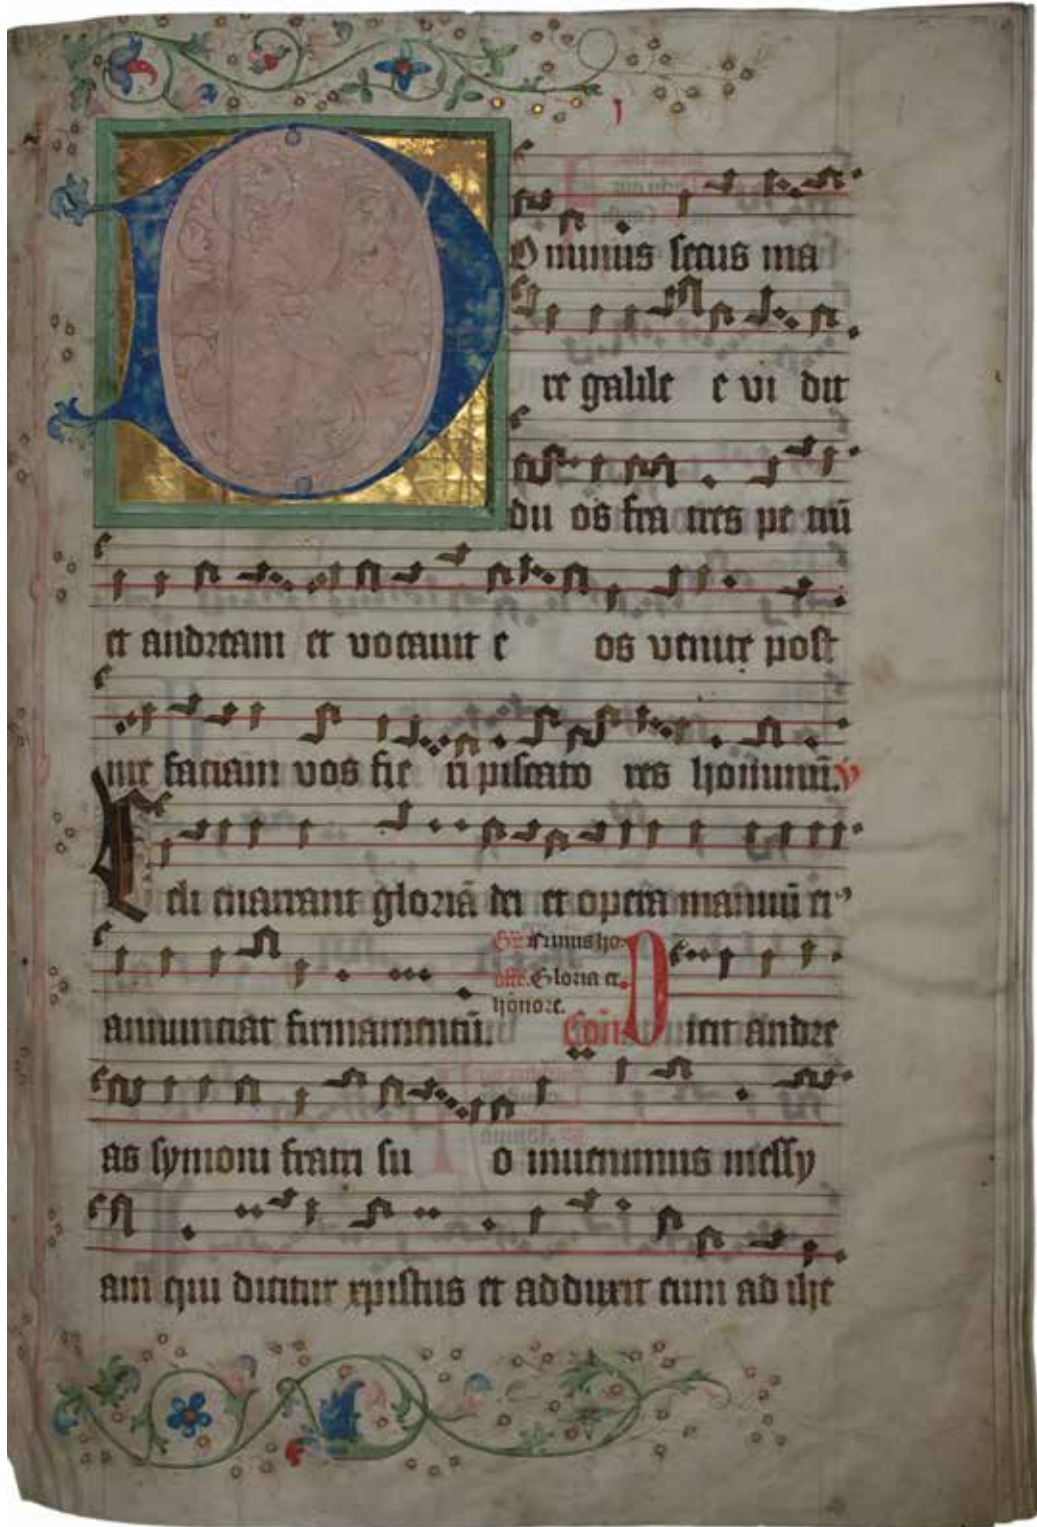 Dominus secus ma
re galile e vi dit
du os fra tres pe trū
et andream et vocauit e os venite post
me faciam vos fie ri piscato res hominū. v
Celi enarrant gloriā dei et opera manuū ei9
annunciat firmamentū.
Gr̄ Nimis ho.
offr̄. Gloria et.
honore.
Com̄ Dicit andre
as symoni fratri su o inuenimus messy
am qui dicitur xpistus et adduxit eum ad ihe